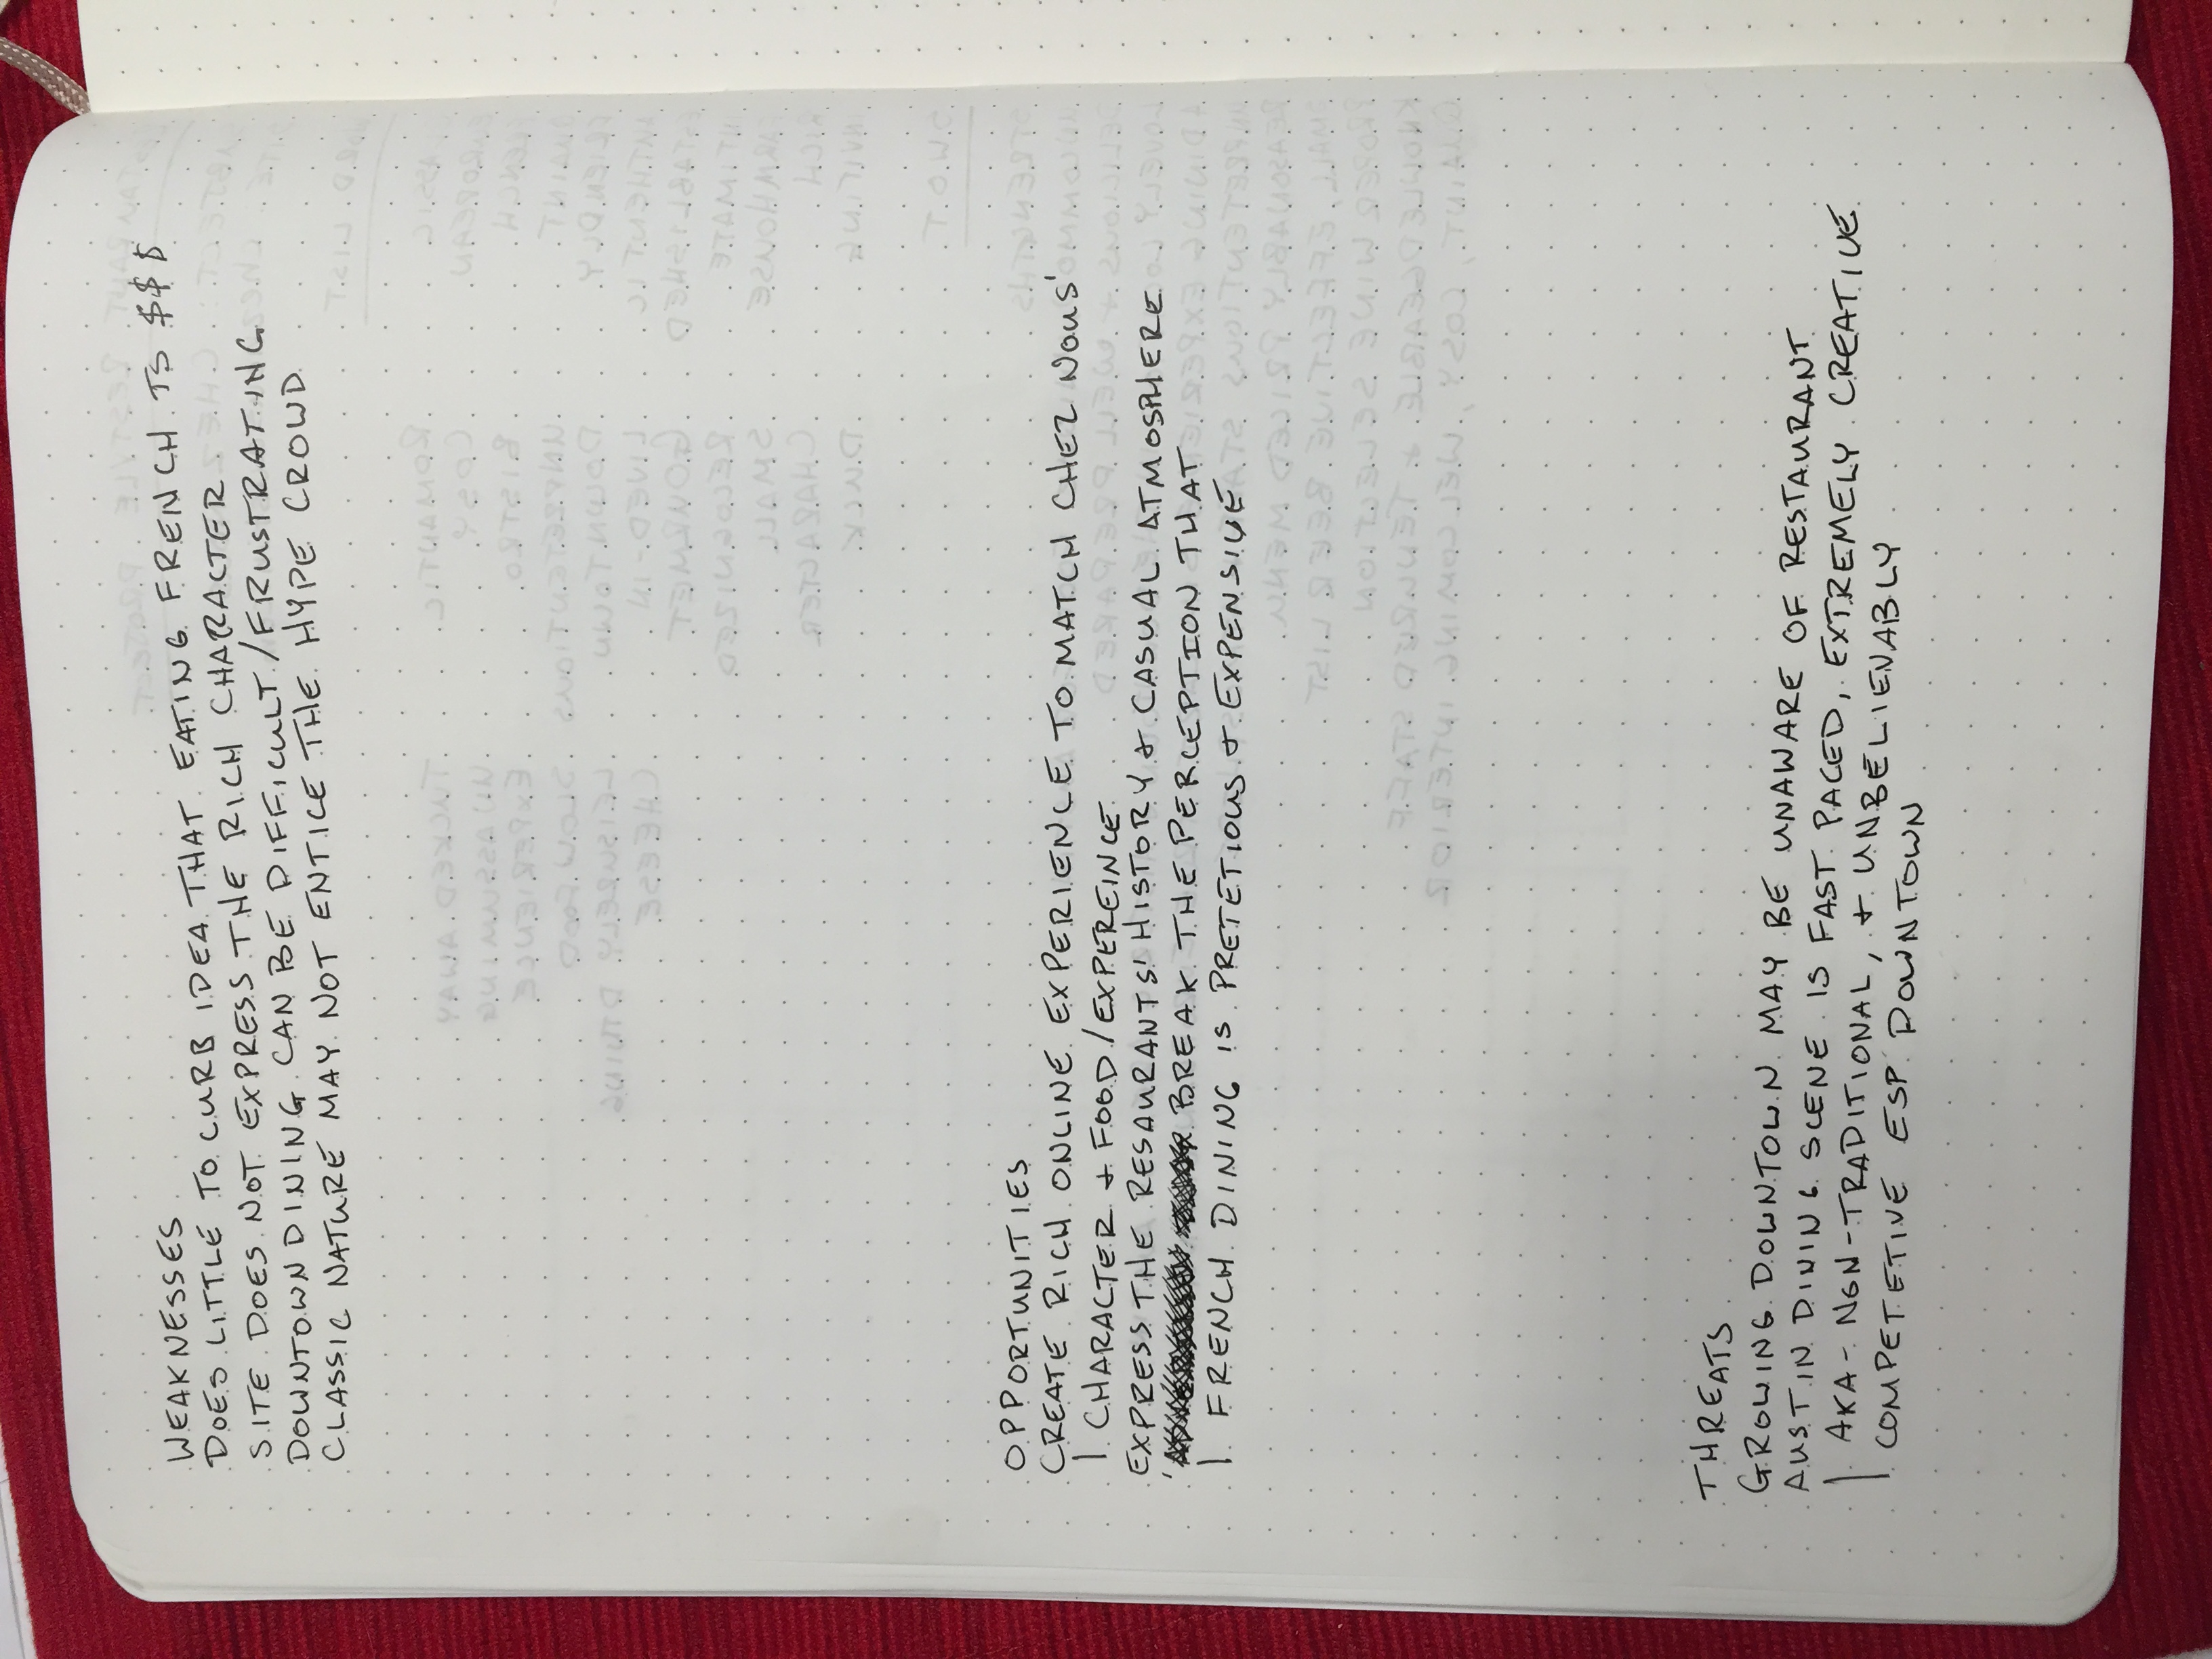 WEAKNESSES
DOES LITTLE TO CURB IDEA THAT EATING FRENCH IS $$$
SITE DOES NOT EXPRESS THE RICH CHARACTER
DOWNTOWN DINING CAN BE DIFFICULT/FRUSTRATING
CLASSIC NATURE MAY NOT ENTICE THE HYPE CROWD
OPPORTUNITIES
CREATE RICH ONLINE EXPERIENCE TO MATCH CHEZ NOUS'
CHARACTER & FOOD/EXPEREINCE
EXPRESS THE RESAURANTS' HISTORY & CASUAL ATMOSPHERE
BREAK THE PERCEPTION THAT
FRENCH DINING IS PRETETIOUS & EXPENSIVE
THREATS
GROWING DOWNTOWN MAY BE UNAWARE OF RESTAURANT
AUSTIN DINING SCENE IS FAST PACED, EXTREMELY CREATIVE
AKA - NON-TRADITIONAL, & UNBELIENABLY
COMPETETIVE ESP. DOWNTOWN